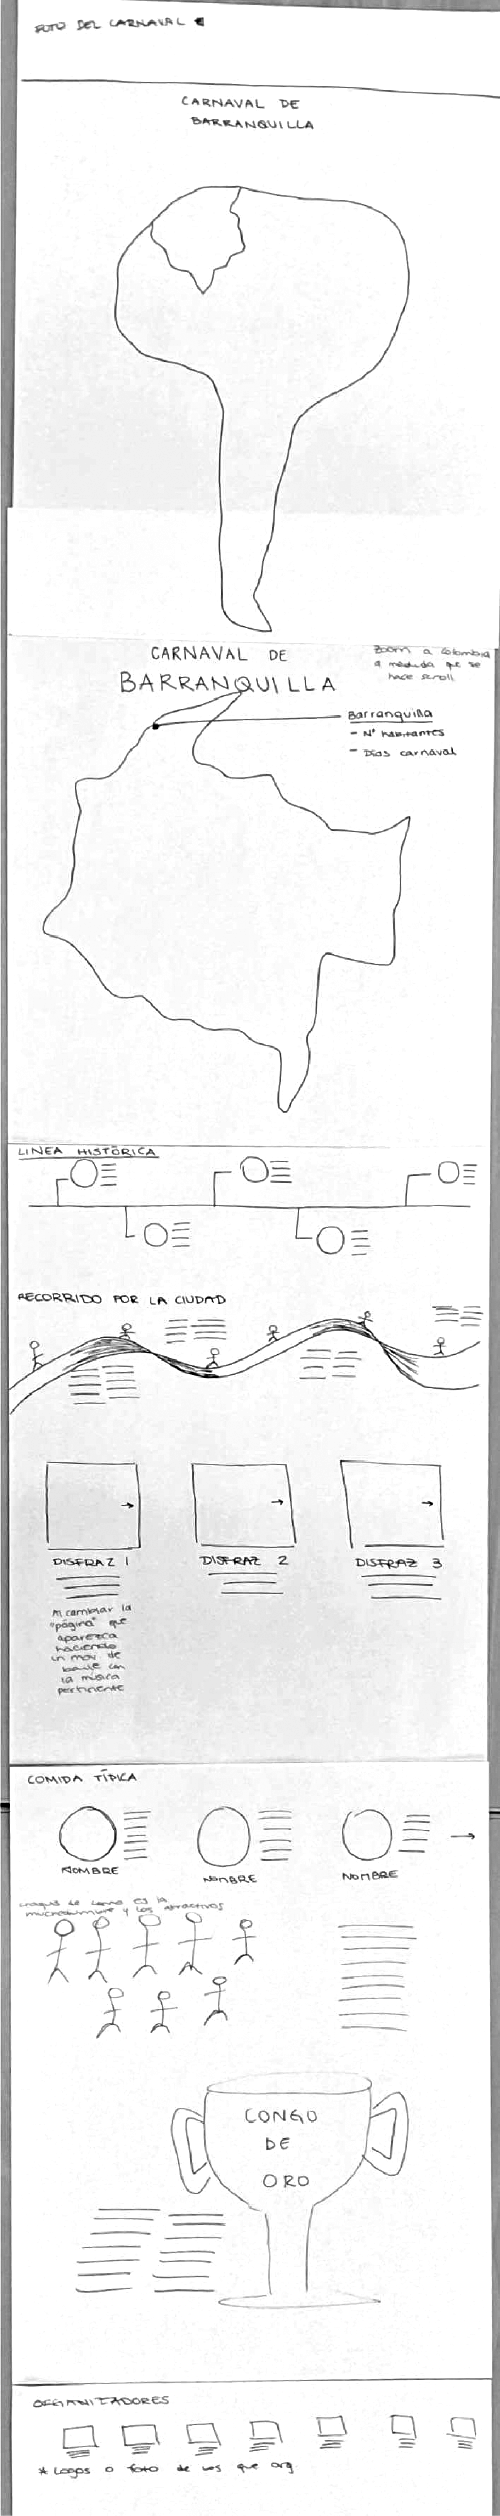 FOTO DEL CARNAVAL
CARNAVAL DE
BARRANQUILLA
CARNAVAL DE
BARRANQUILLA
Zoom a Colombia
a medida que se
hace scroll
Barranquilla
- Nº habitantes
- Días carnaval
LINEA HISTÓRICA
RECORRIDO POR LA CIUDAD
DISFRAZ 1
DISFRAZ 2
DISFRAZ 3
Al cambiar la
"página" que
aparezca
haciendo
un mov. de
baile con
la música
pertinente
COMIDA TÍPICA
NOMBRE
NOMBRE
NOMBRE
de como es la
y los
CONGO
DE
ORO
ORGANIZADORES
* Logos o foto de los que org